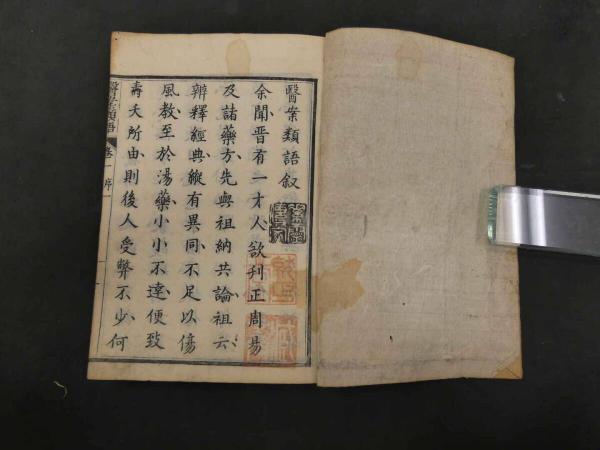 醫案類語叙
余聞晋有一才人欲刋正周易
及諸藥方先與祖納共論祖云
辨釋經典縱有異同不足以傷
風教至於湯藥小小不達便致
壽夭所由則後人受弊不少何
卷一 序 一